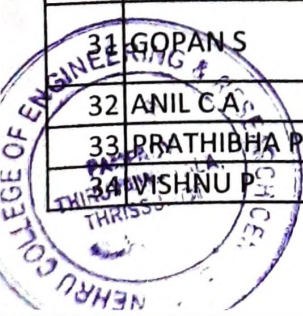 31 GOPAN S
32 ANIL C A
33 PRATHIBHA P
34 VISHNU P
NEHRU COLLEGE OF ENGINEERING &
THRISS